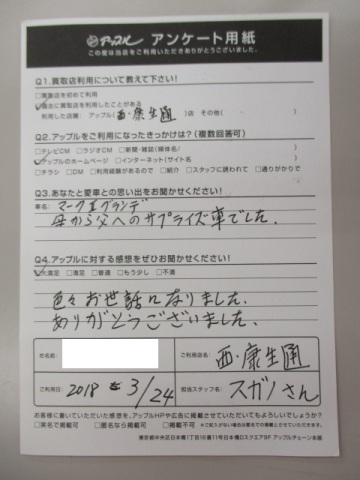 アップル アンケート用紙
この度は当店をご利用いただきありがとうございました。
Q1.買取店利用について教えて下さい!
□買取店を初めて利用
☑過去に買取店を利用したことがある
利用した店舗: アップル(西・康生通)店 その他( )
Q2.アップルをご利用になったきっかけは?(複数回答可)
□テレビCM □ラジオCM □新聞・雑誌(媒体名/ )
☑アップルのホームページ □インターネット(サイト名 )
□チラシ □DM □利用経験があるので □紹介 □スタッフに誘われて □通りがかりで
Q3.あなたと愛車との思い出をお聞かせください!
車名: マークⅡグランデ
母から父へのサプライズ車でした。
Q4.アップルに対する感想をぜひお聞かせください!
☑大満足 □満足 □普通 □もう少し □不満
色々お世話になりました。
ありがとうございました。
お名前:
ご利用店名: 西・康生通
ご利用日: 2018 3/24
担当スタッフ名: スガノさん
お客様に書いていただいた感想を、アップルHPや広告に掲載させていただいてもよろしいでしょうか?
□実名で掲載可 □匿名なら掲載可 □掲載不可 ※ご記入がない場合は匿名での掲載とさせていただきます。
東京都中央区日本橋1丁目16番11号日本橋Dスクエア9F アップルチェーン本部